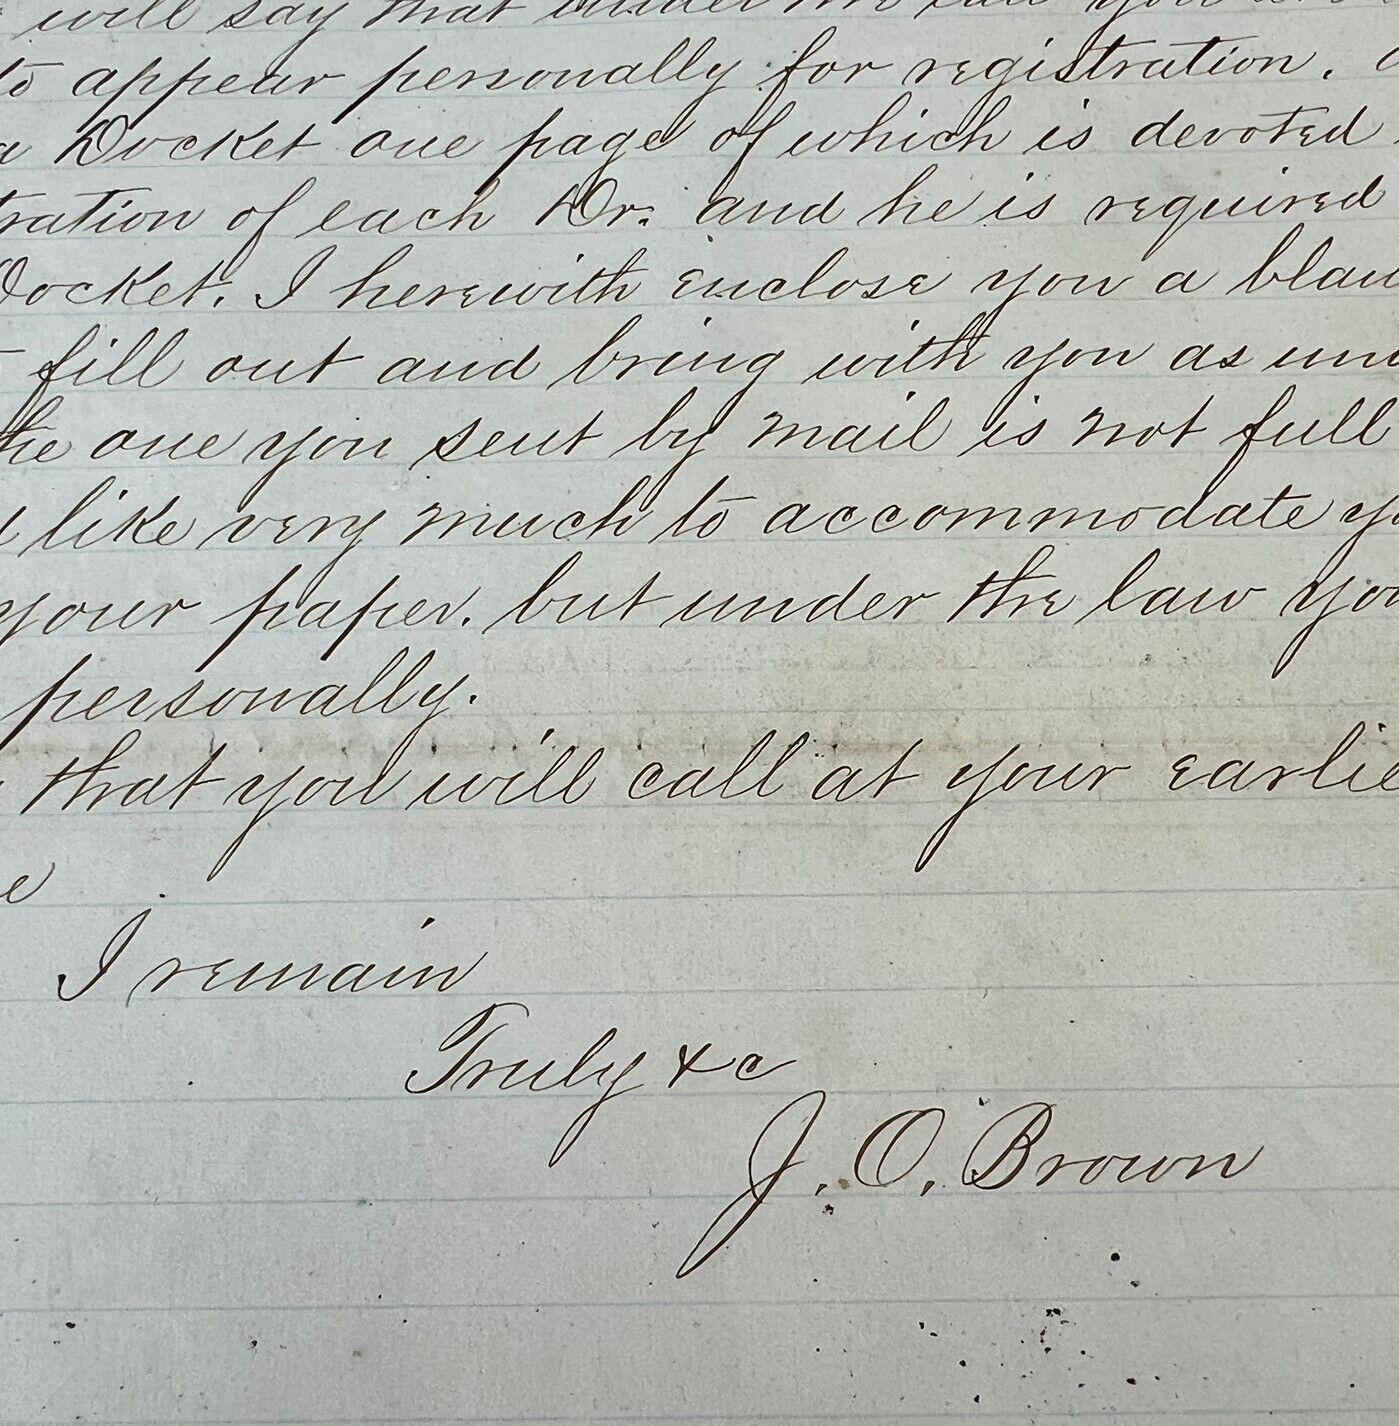 will say that under the law you are
to appear personally for registration.
a Docket one page of which is devoted
tration of each Dr. and he is required
Docket. I herewith enclose you a blan
fill out and bring with you as un
the one you sent by mail is not full
like very much to accommodate yo
your paper. but under the law you
personally.
that you will call at your earlie
e
I remain
Truly &c
J. O. Brown